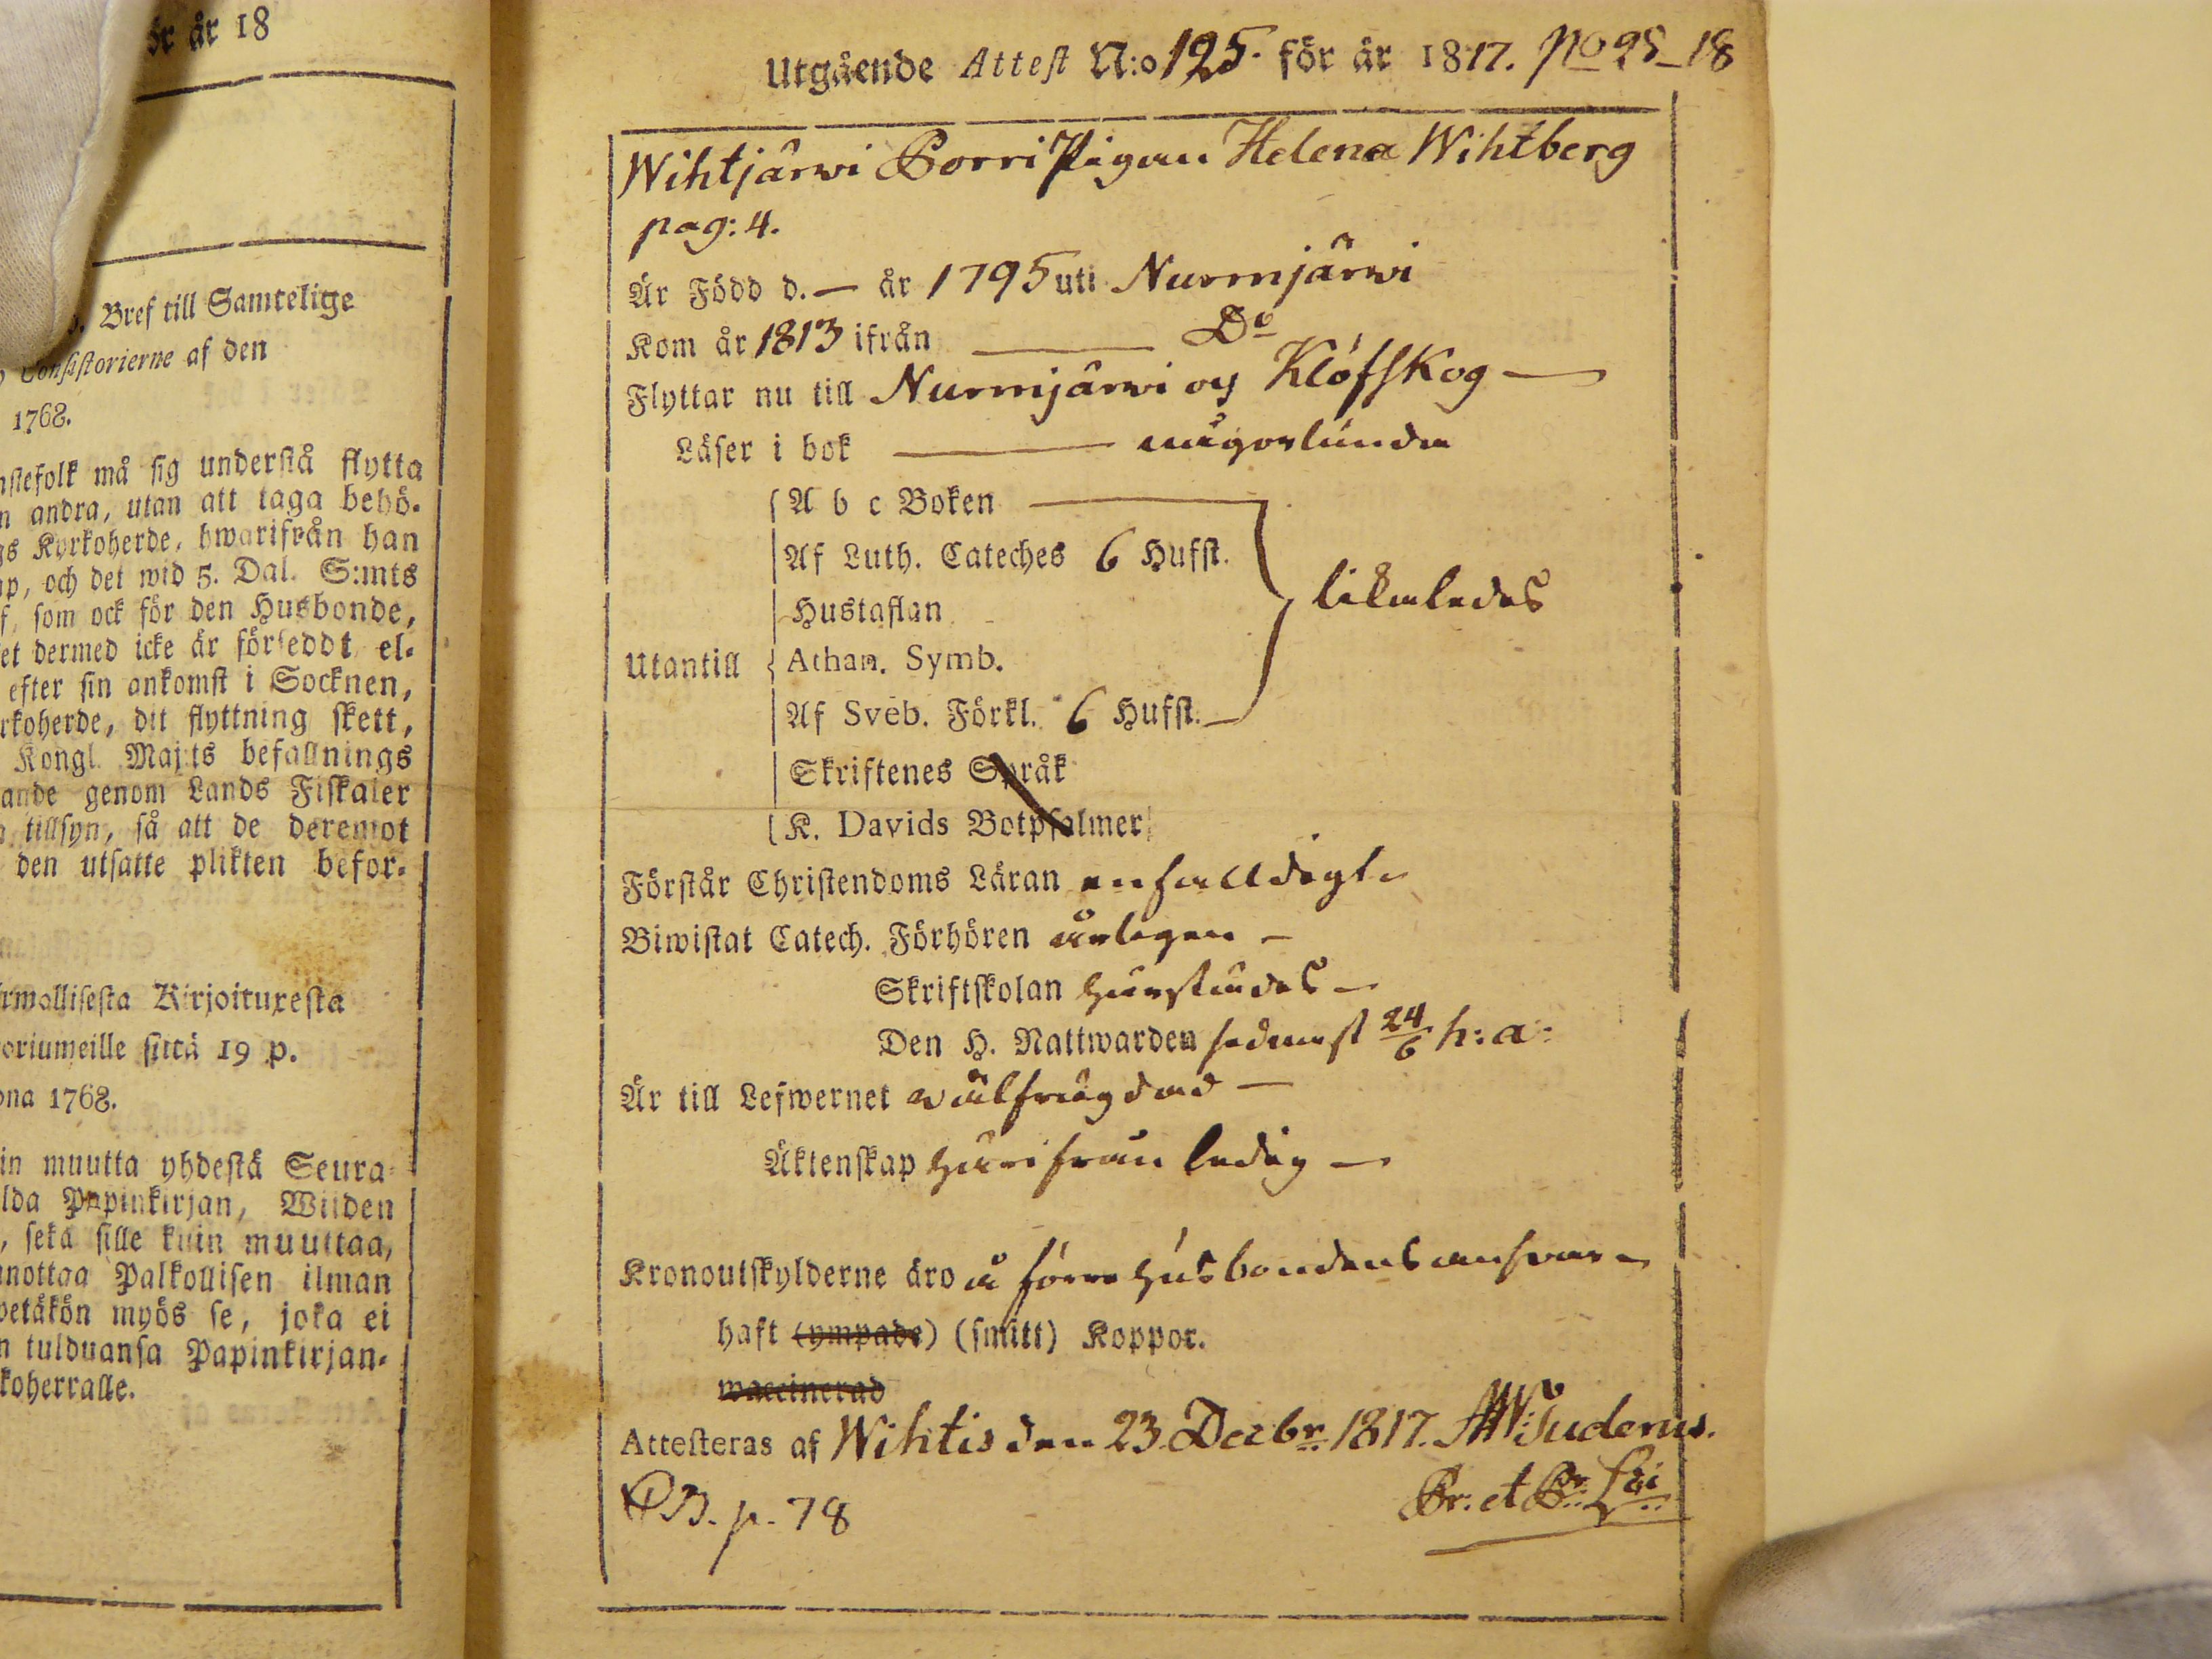 ör år 18
. Bref till Samtelige
Consistorierne af den
1768.
nstefolk må sig understå flytta
n andra, utan att taga behö-
gs Kyrkoherde, hwarifrån han
ap, och det wid 5. Dal. S:mts
f, som ock för den Husbonde,
et dermed icke är förseddt el-
efter sin ankomst i Socknen,
rkoherde, dit flyttning skett,
Kongl. Maj:ts befallnings
ande genom Lands Fiskaler
a tillsyn, så att de deremot
den utsatte plikten befor-
rmollisesta Kirjoituxesta
oriumeille sittä 19 p.
ona 1768.
in muutta yhdestä Seura-
lda Papinkirjan, Wiiden
, sekä sille kuin muuttaa,
nnottaa Palkollisen ilman
wetäkön myös se, joka ei
n tulduansa Papinkirjan-
koherralle.
Utgående Attest N:o 125. för år 1817. No 95_18
Wihtjärwi Borri Pigan Helena Wihtberg
pag: 4.
Är Född d. — år 1795 uti Nurmjärwi
Kom år 1813 ifrån — Do
Flyttar nu till Nurmijärwi oy Klöfskog —
Läser i bok — någorlunda
A b c Boken —
Af Luth. Cateches 6 Hufst.
Hustaflan
likaledes
Utantill Athan. Symb.
Af Sveb. Förkl. 6 Hufst.
Skriftenes Språk
K. Davids Botpsalmer
Förstår Christendoms Läran enfalldigt
Biwistat Catech. Förhören årligen —
Skriftskolan härstädes —
Den H. Nattwarden sednast 24/6 h: a:
Är till Lefwernet wälfrägdad —
Äktenskap härifrån ledig —
Kronoutskylderne äro å förre husbondens answar
haft (ympade) (smitt) Koppor.
waccinerad
Attesteras af Wihtis den 23 Decbr 1817. AW: Sudenus.
B. p. 78
Pr: et Pr: Lci